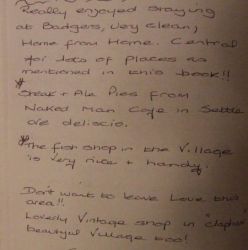 Really enjoyed staying
at Badgers, Very clean,
Home from Home. Central
for lots of places as
mentioned in this book!!
* Steak + Ale Pies from
Naked Man Cafe in Settle
are deliscio.
* The fish shop in the Village
is very nice + handy.
Don't want to leave Love this
area!!.
Lovely Vintage shop in "Clapham"
beautiful Village too!